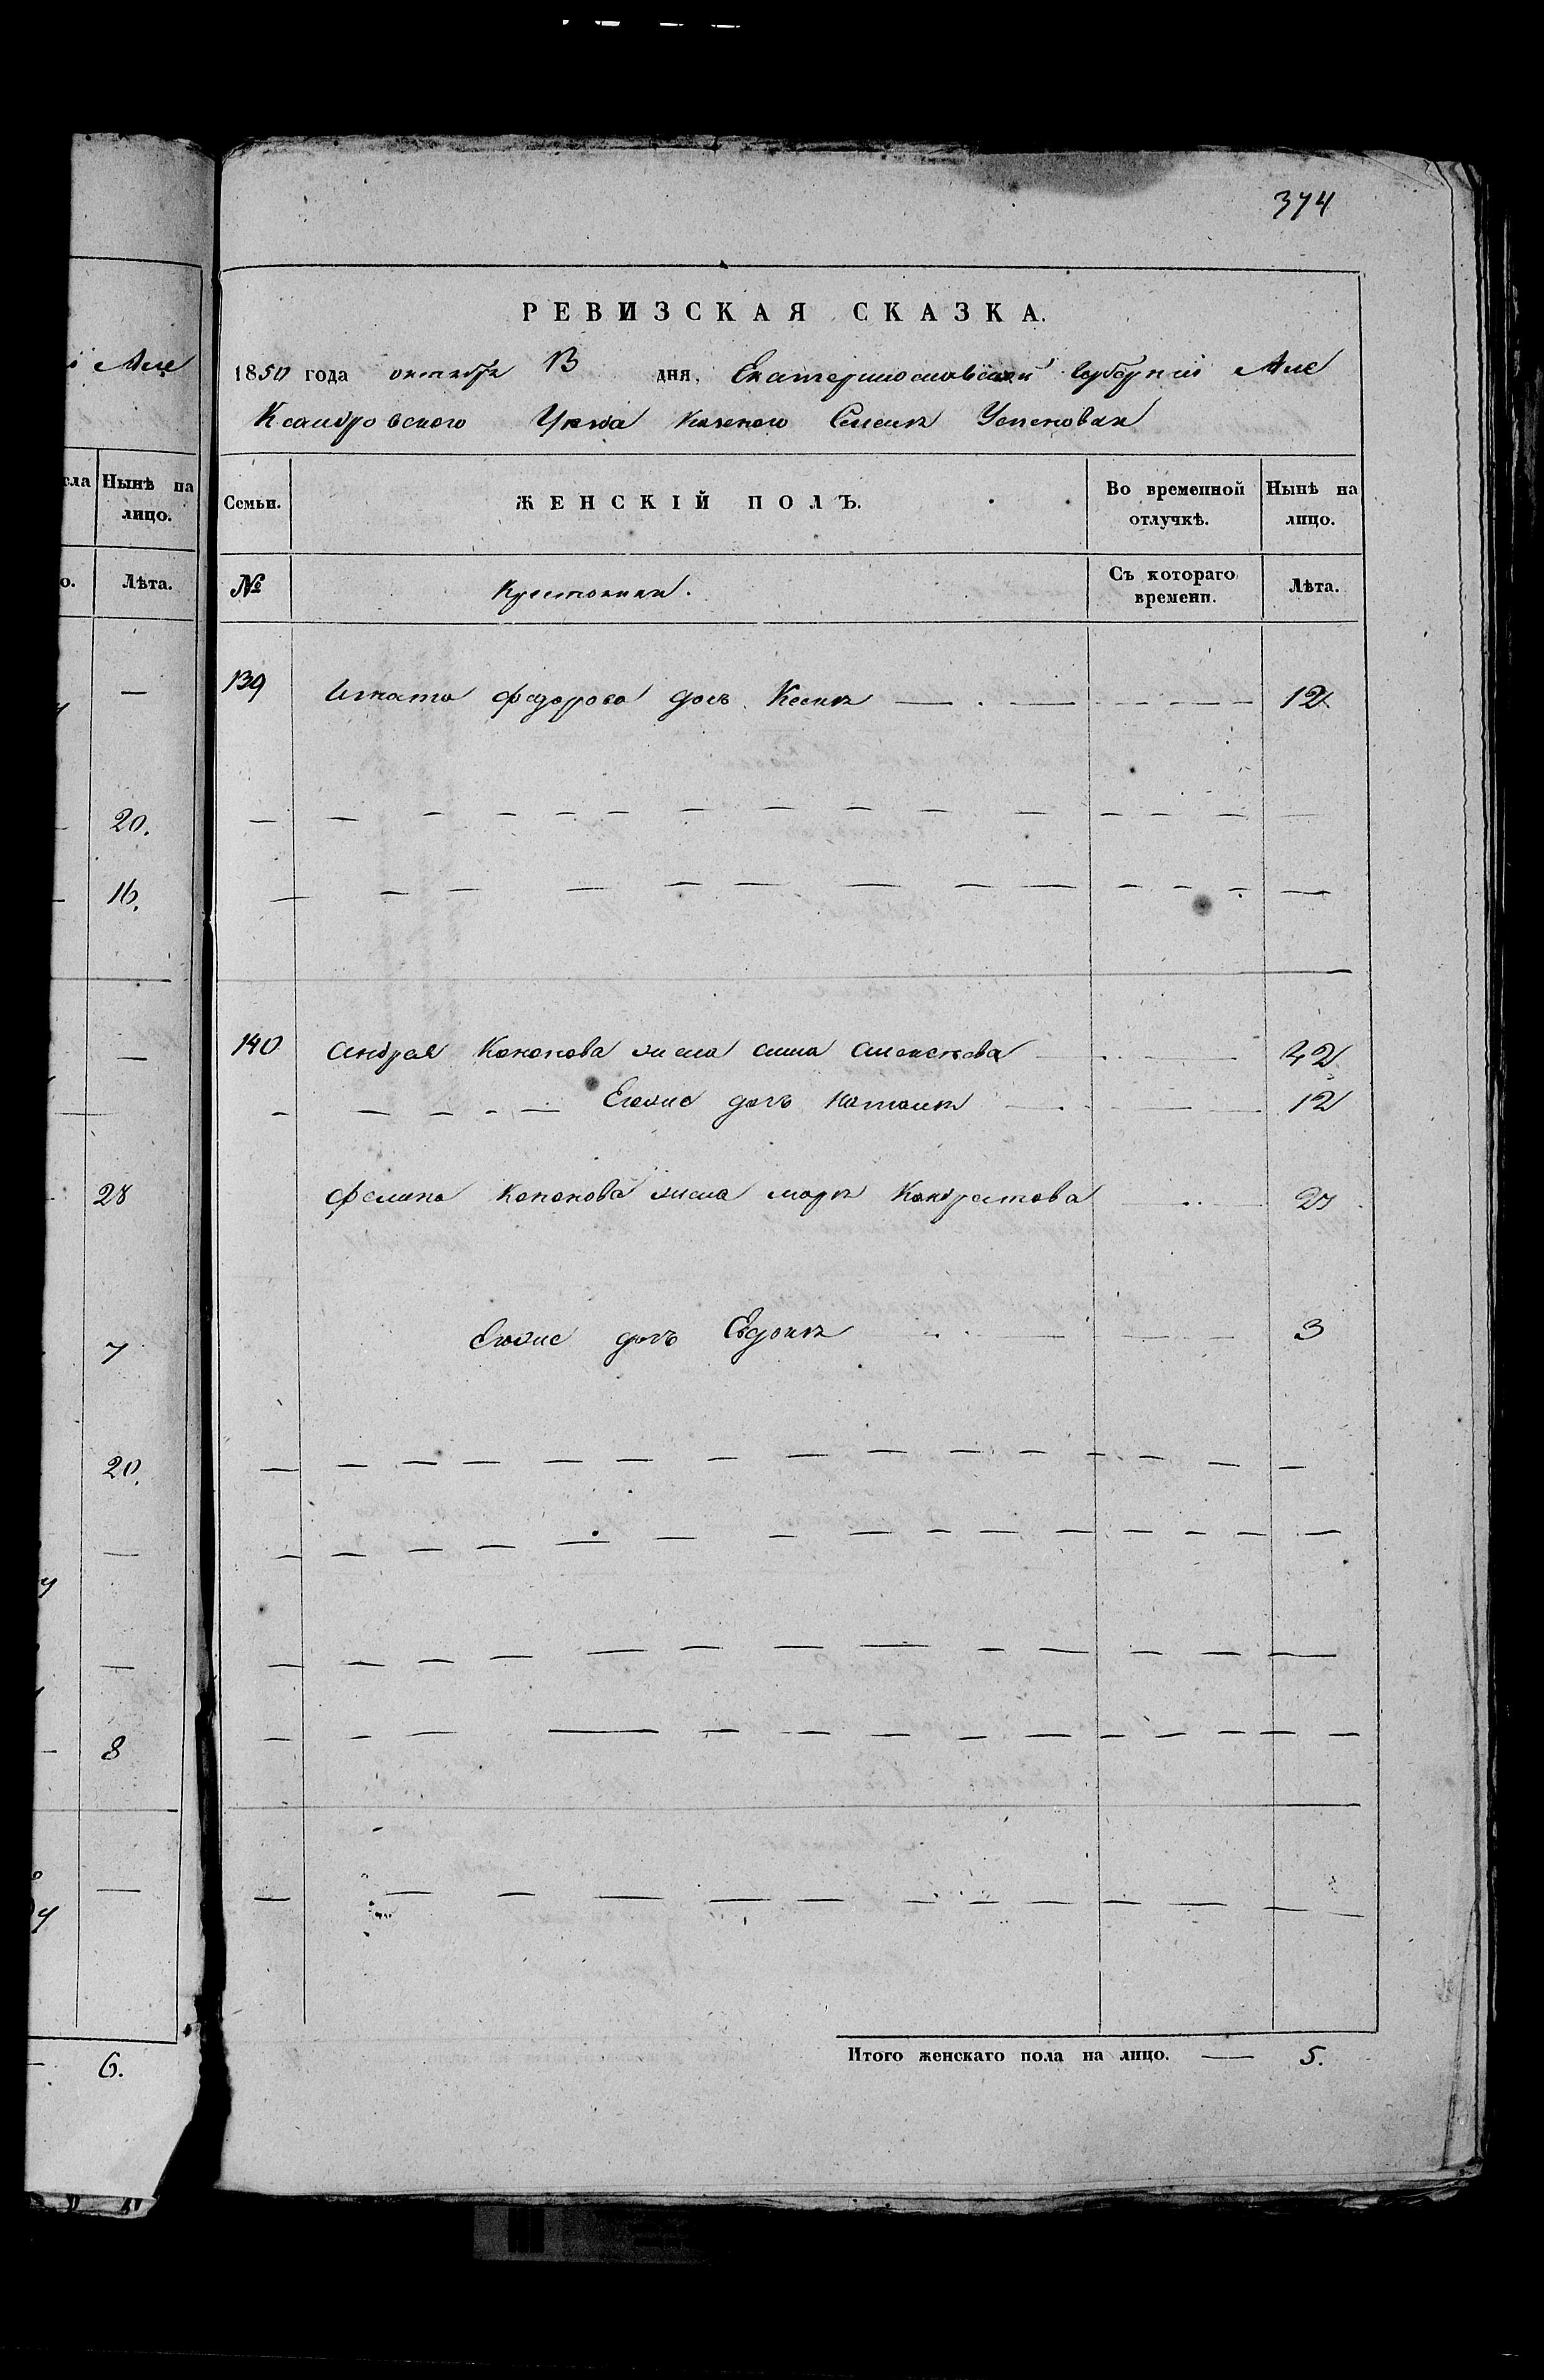 374
РЕВИЗСКАЯ СКАЗКА.
1850 года октября 13 дня, Екатеринославской Губернии Але
Ксандровского Уезда казеного Селения Успеновки
Семьи. ЖЕНСКІЙ ПОЛЪ. Во временной отлучкѣ. Нынѣ на лицо.
№ Крестьянки. Съ котораго времени. Лѣта.
139 Игната Федорова дочь Ксения 12
140 Андрея Кононова жена Анна Алексеева 42
Еговие дочь Наталия 12
Филипа Кононова жена Марья Кондратова 27
Еговие дочь Евдокия 3
Итого женскаго пола на лицо. 5.
Але
Нынѣ на
лицо.
Лѣта.
20.
16.
28
7
20.
8
6.